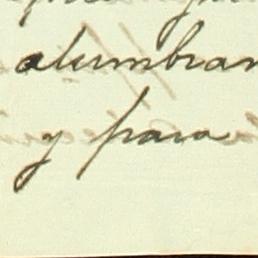 alumbran
y para